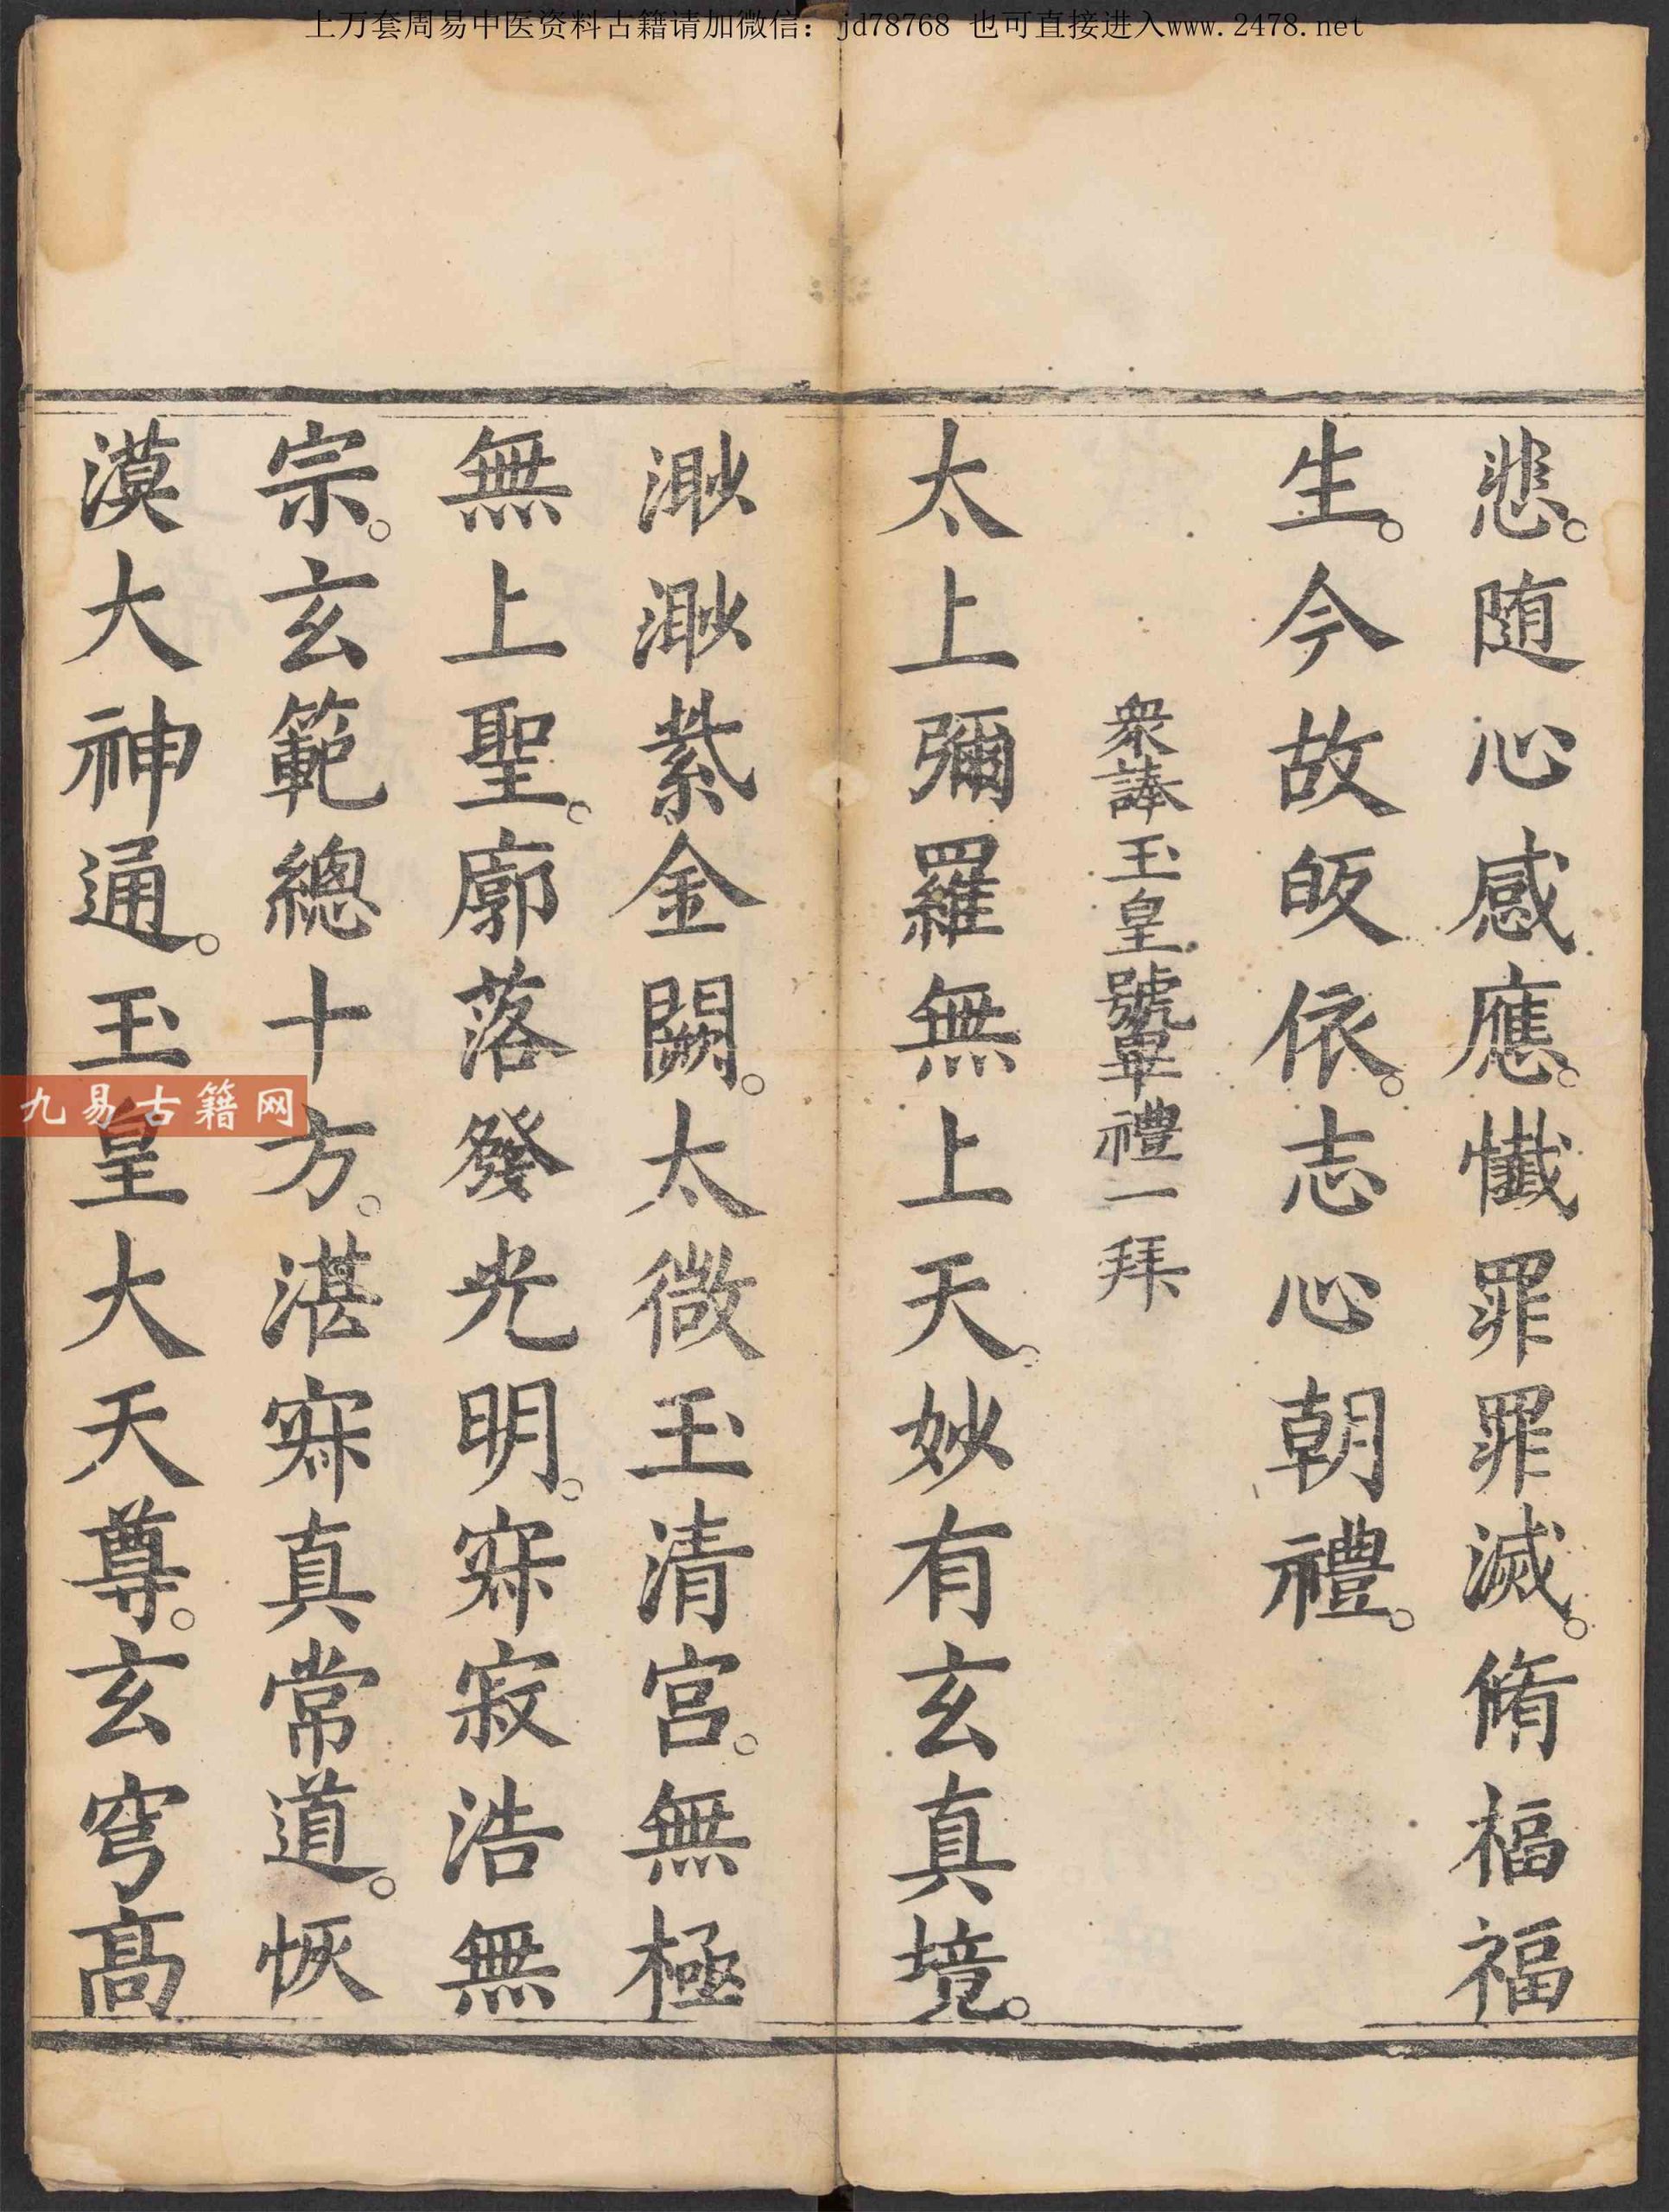 上万套周易中医资料古籍请加微信：jd78768 也可直接进入www.2478.net
悲。随心感應。懺罪罪滅。脩福福
生。今故皈依。志心朝禮。
衆誦玉皇號畢禮一拜
太上彌羅無上天。妙有玄真境。
渺渺紫金闕。太微玉清宫。無極
無上聖。廓落發光明。寂寂浩無
宗。玄範總十方。湛寂真常道。恢
漠大神通。玉皇大天尊。玄穹高
九易古籍网